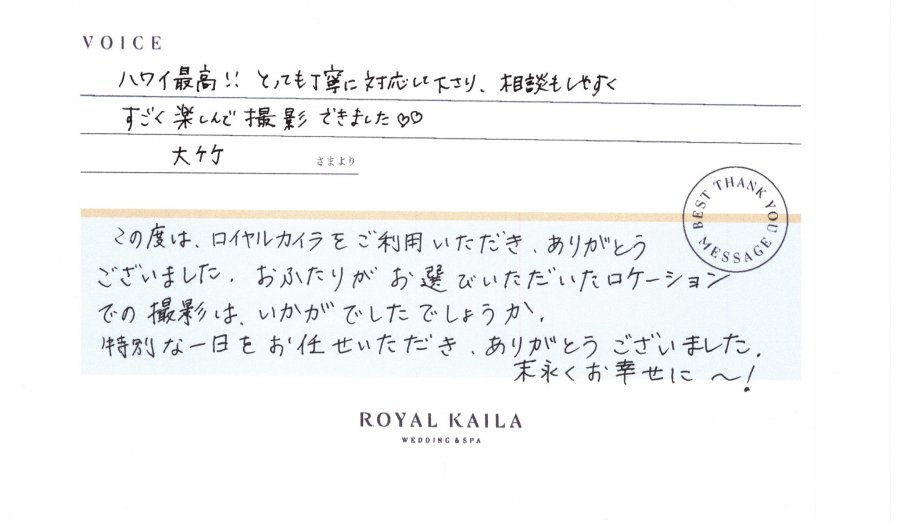 VOICE
ハワイ最高!! とっても丁寧に対応して下さり、相談もしやすく
すごく楽しんで撮影できました♡♡
大竹 さまより
BEST THANK YOU MESSAGE
この度は、ロイヤルカイラをご利用いただき、ありがとう
ございました。おふたりがお選びいただいたロケーション
での撮影は、いかがでしたでしょうか。
特別な一日をお任せいただき、ありがとうございました。
末永くお幸せに〜!
ROYAL KAILA
WEDDING & SPA